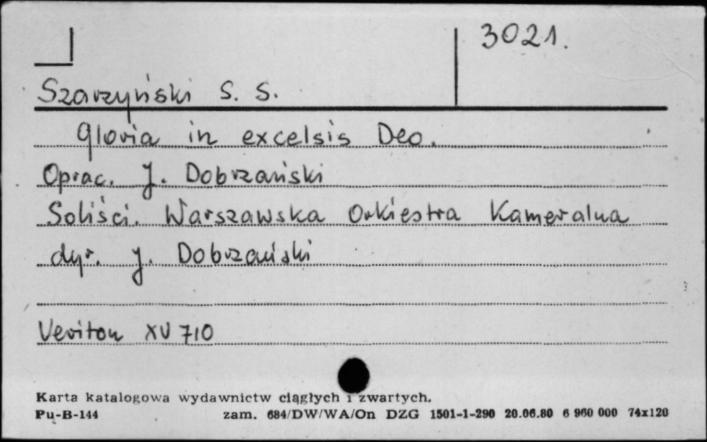 3021.
Szarzyński S. S.
Gloria in excelsis Deo.
Oprac. J. Dobrzański
Soliści. Warszawska Orkiestra Kameralna
dyr. J. Dobrzański
Veriton XV 710
Karta katalogowa wydawnictw ciągłych i zwartych.
Pu-B-144 zam. 684/DW/WA/On DZG 1501-1-290 20.06.80 6 960 000 74x120